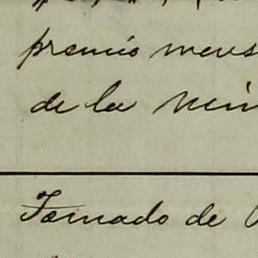 premio mens
de la Nin
Tomado de